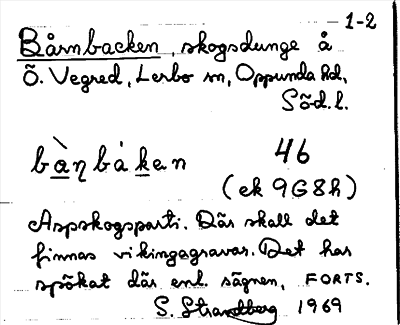 1-2
Bårnbacken, skogsdunge å
Ö. Vegred, Lerbo sn, Oppunda hd,
Söd. l.
bànbàken 46
(ek 9G8h)
Aspskogsparti. Där skall det
finnas vikingagravar. Det har
spökat där enl. sägnen, FORTS.
S. Strandberg 1969